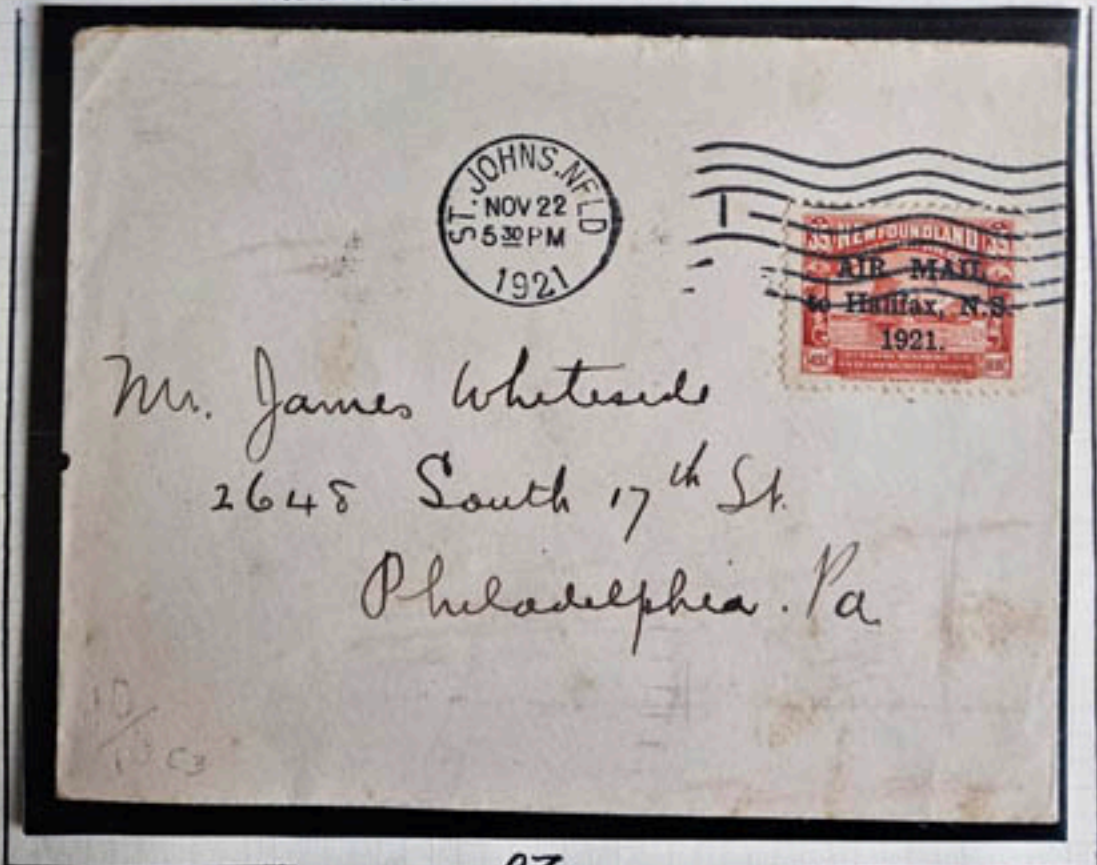 ST. JOHNS. NFLD
NOV 22
5 30 PM
1921
35 NEWFOUNDLAND 35
AIR MAIL
to Halifax, N.S.
1921.
Mr. James Whiteside
2648 South 17th St.
Philadelphia. Pa.
C3